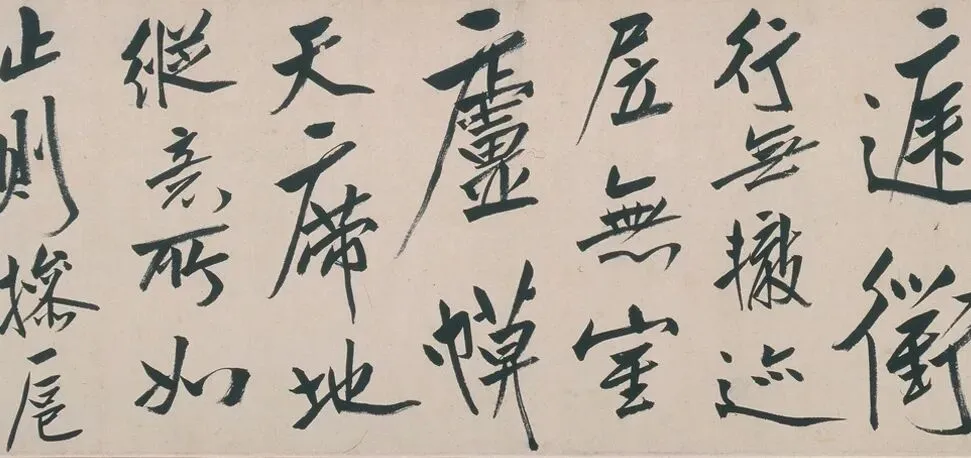 庭衢
行無轍迹
居無室
廬幙
天席地
縱意所如
止則操卮